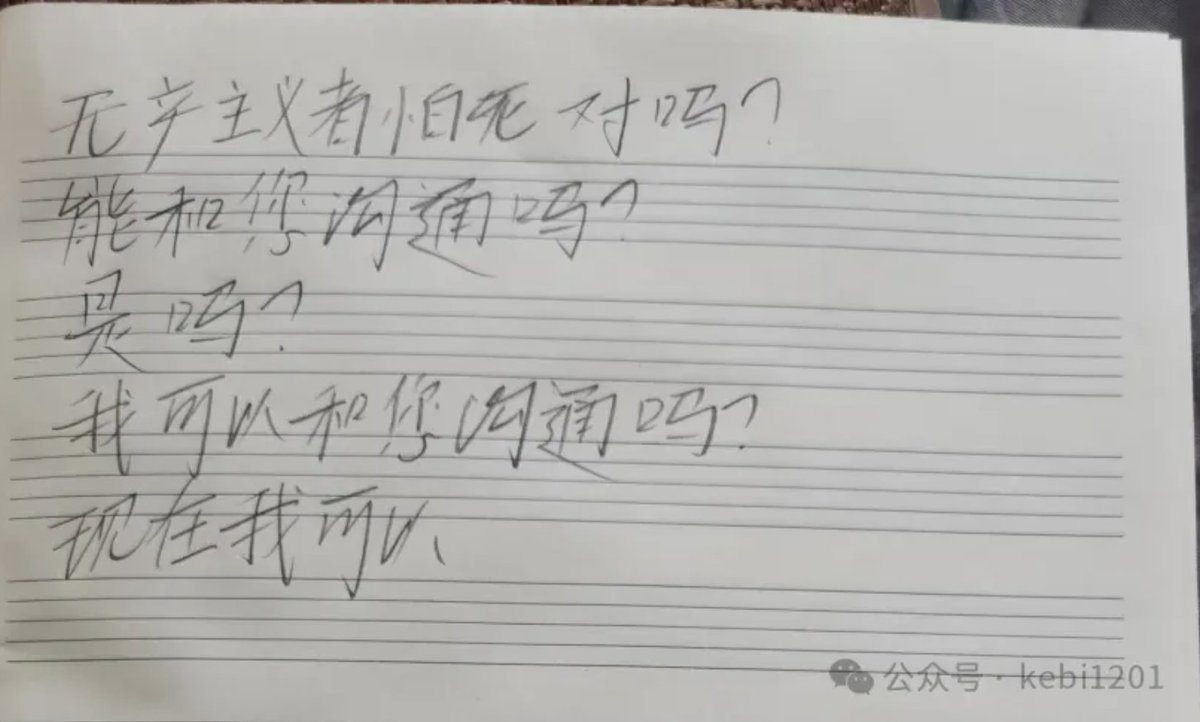 无产主义者怕死对吗？
能和您沟通吗？
是吗？
我可以和您沟通吗？
现在我可以
公众号·kebi1201